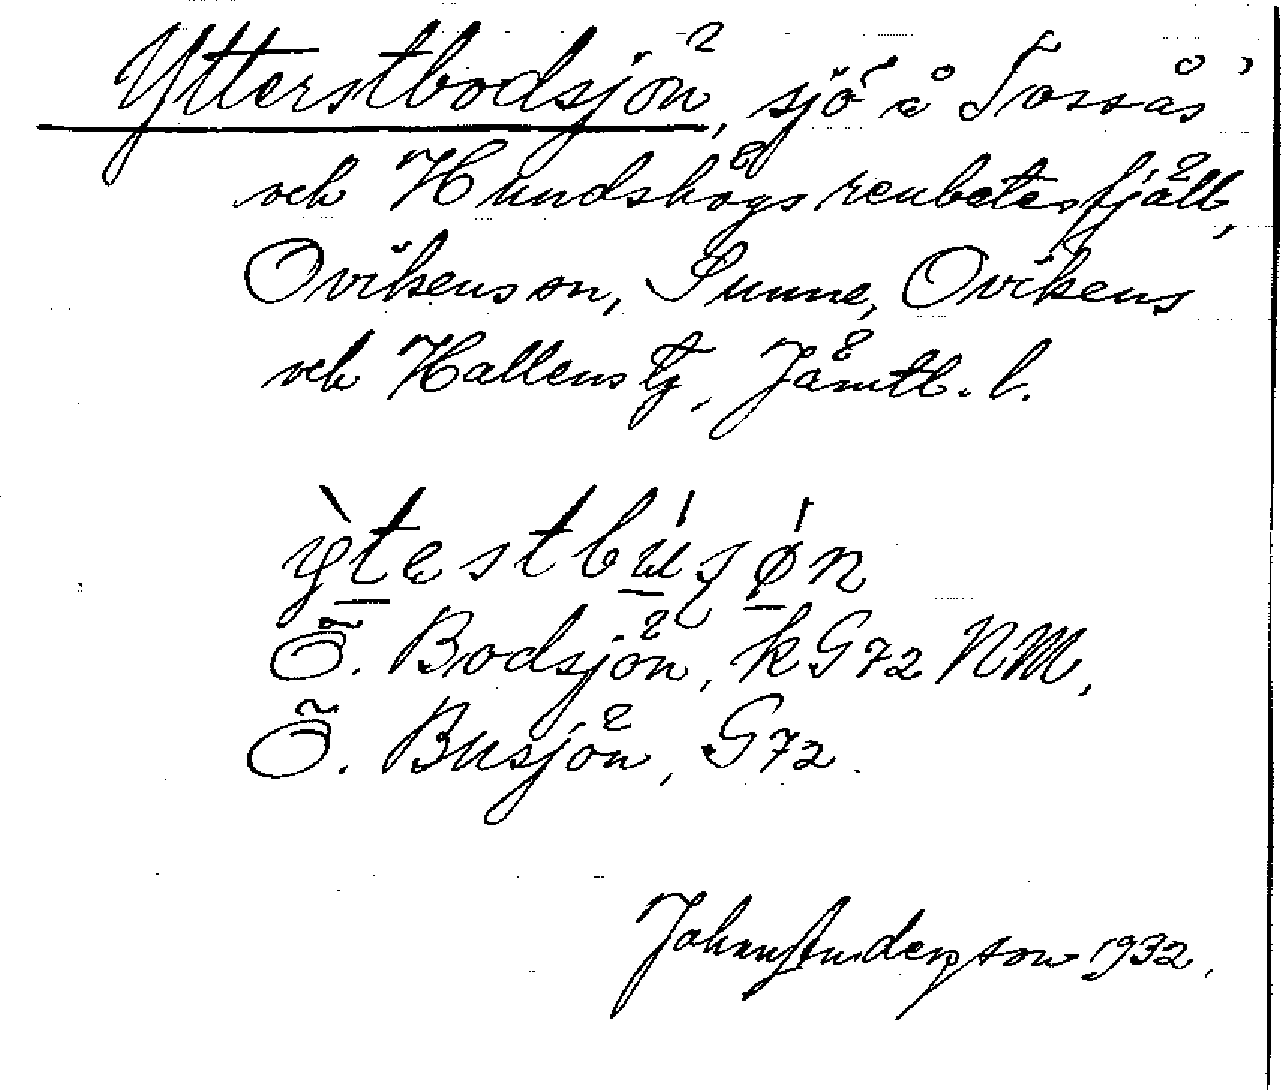 Ytterstbodsjön, sjö i Tossås
och Hundshögs renbetesfjäll,
Ovikens sn, Sunne, Ovikens
och Hallens tg, Jämtl. l.
ỳtestbúsǿn
Ö. Bodsjön, kG72 NM,
Ö. Busjön, G72.
John Anderson 1932.